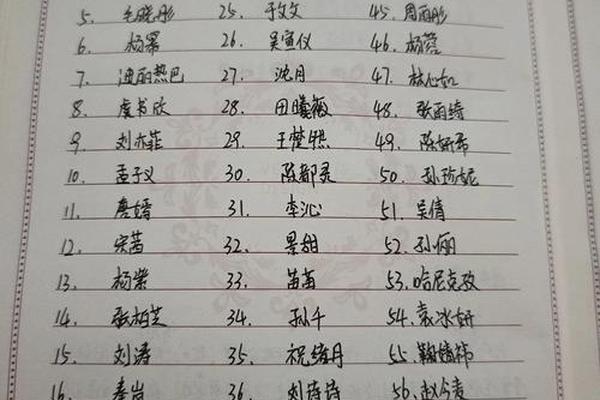 5. 毛晓彤 25. 于文文 45. 周雨彤
6. 杨幂 26. 吴宣仪 46. 杨蓉
7. 迪丽热巴 27. 沈月 47. 林心如
8. 虞书欣 28. 田曦薇 48. 张雨绮
9. 刘亦菲 29. 王楚然 49. 陈妍希
10. 孟子义 30. 陈都灵 50. 孙珍妮
11. 唐嫣 31. 李沁 51. 吴倩
12. 宋茜 32. 景甜 52. 孙俪
13. 杨紫 33. 苗苗 53. 哈尼克孜
14. 张柏芝 34. 孙千 54. 袁冰妍
15. 刘涛 35. 祝绪丹 55. 鞠婧祎
16. 秦岚 36. 刘诗诗 56. 赵今麦